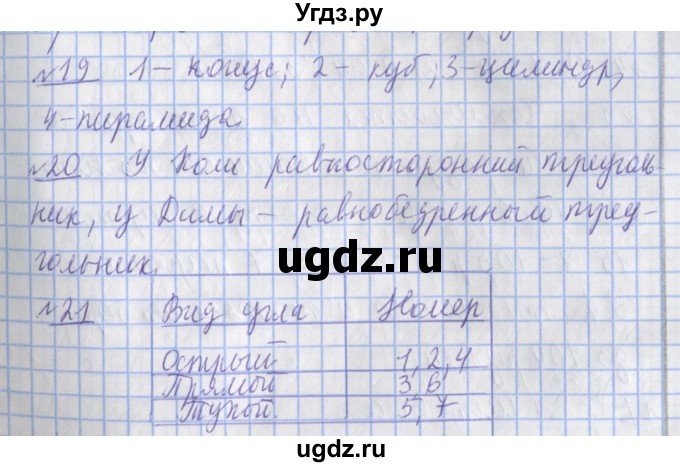 Угдз.ру
№19 1 – конус; 2 – куб; 3-цилиндр,
4-пирамида
№20 У Коли равносторонний треуголь-
ник, у Димы – равнобедренный треу-
гольник.
ugdz.ru
№21 Вид угла Номер
Острый 1, 2, 4
Прямой 3, 6
Тупой 5, 7
ugdz.ru